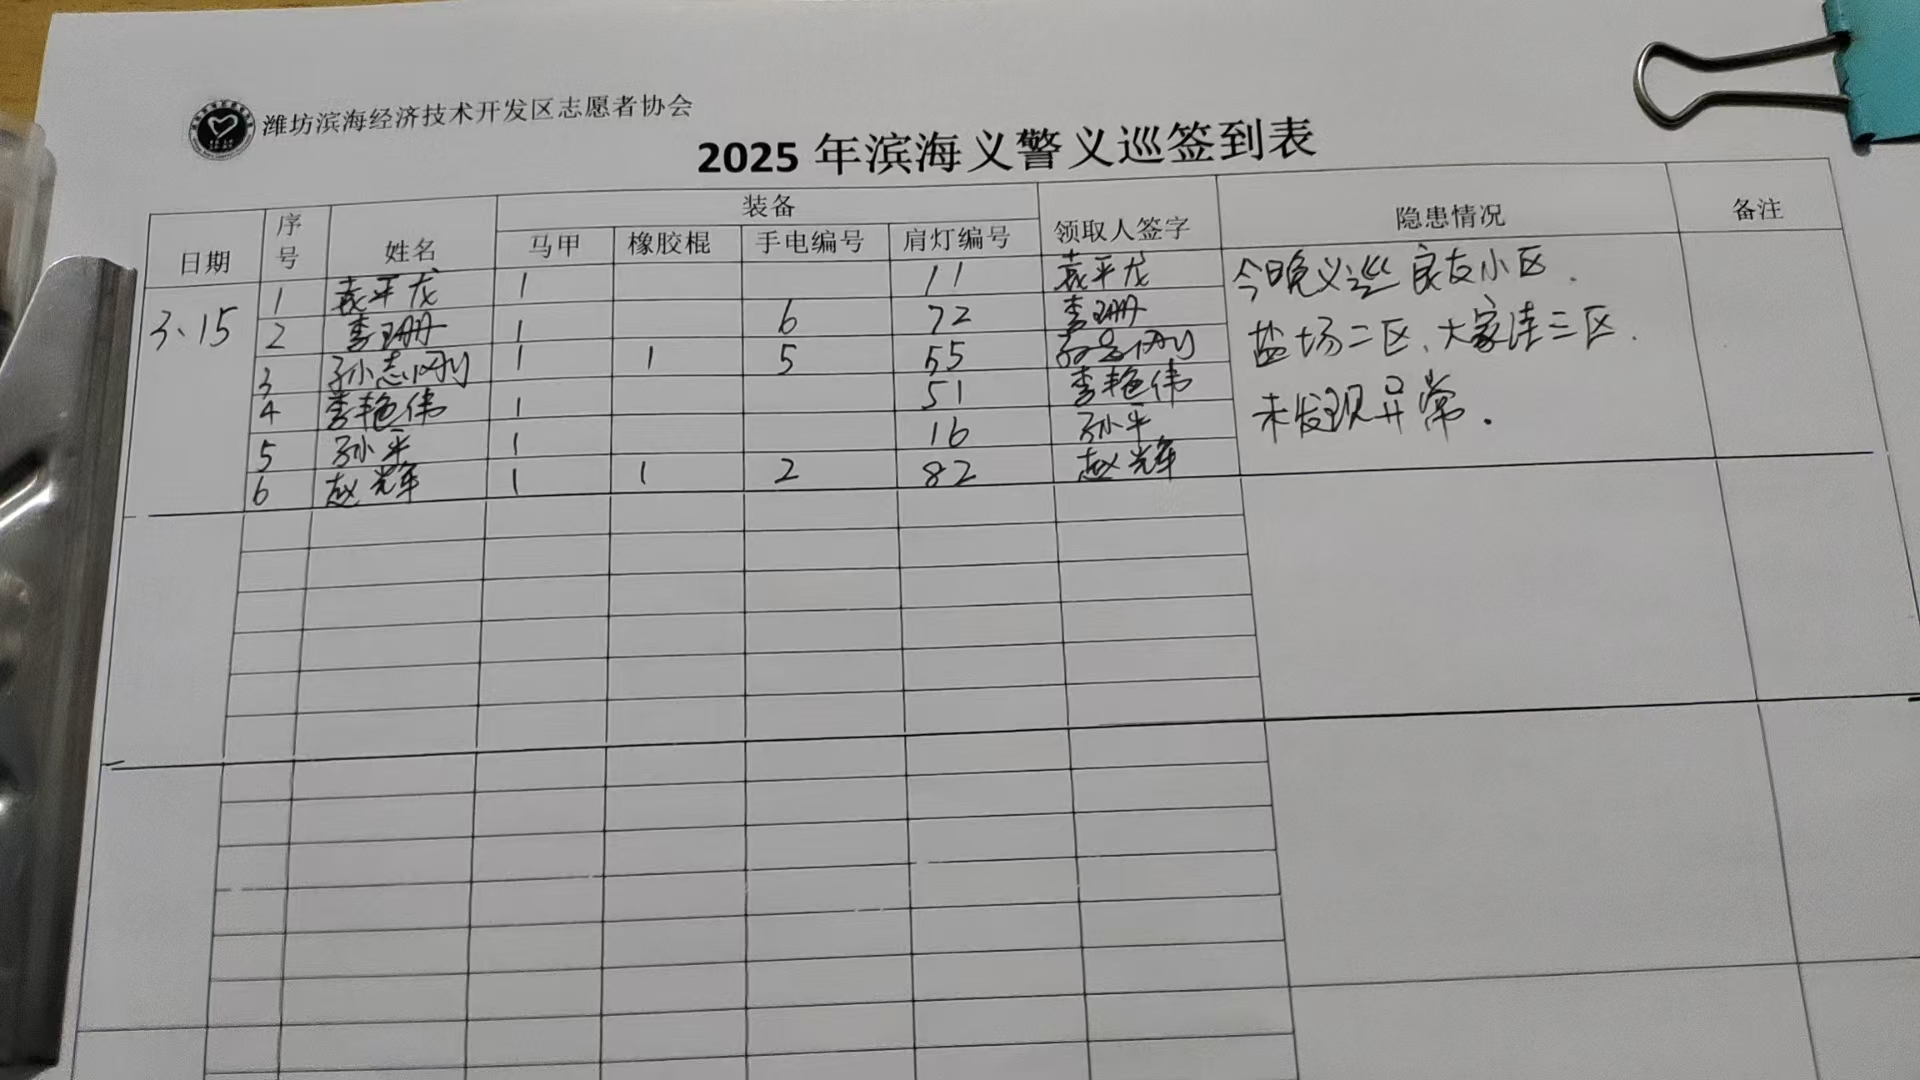 潍坊滨海经济技术开发区志愿者协会
2025 年滨海义警义巡签到表
日期 序号 姓名 装备 领取人签字 隐患情况 备注
马甲 橡胶棍 手电编号 肩灯编号
3.15
1 袁平龙 1 11 袁平龙
2 李珊 1 6 72 李珊
3 孙志刚 1 1 5 55 孙志刚
4 李艳伟 1 51 李艳伟
5 孙平 1 16 孙平
6 赵辉 1 1 2 82 赵辉
今日晚义巡良友小区.
盐场二区、大家洼三区.
未发现异常.